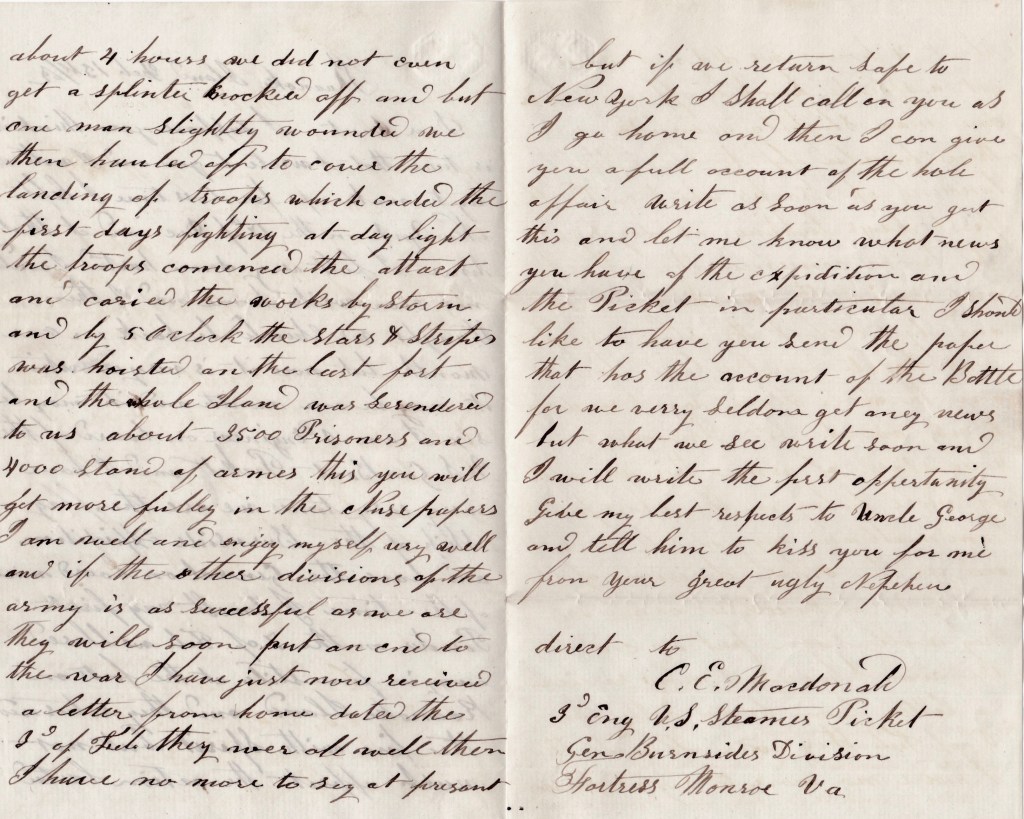 about 4 hours we did not even
get a splinter knocked off and but
one man slightly wounded we
then hauled off to cover the
landing of troops which ended the
first days fighting at day light
the troops comenced the attact
and caried the works by storm
and by 5 Oclock the stars & stripes
was hoisted on the last fort
and the whole Iland was serendered
to us about 3500 Prisoners and
4000 stand of armes this you will
get more fulley in the Nusepapers
I am well and enjoy myself very well
and if the other divisions of the
army is as successful as we are
they will soon put an end to
the war I have just now received
a letter from home dated the
3d of Feb they wer all well then
I have no more to say at present
but if we return safe to
New York I shall call on you as
I go home and then I can give
you a full account of the hole
affair write as soon as you get
this and let me know what news
you have of the expidition and
the Picket in particular I should
like to have you send the paper
that has the account of the Battle
for we verry seldone get aney news
but what we see write soon and
I will write the first oppertunity
Give my best respects to Uncle George
and tell him to kiss you for me
from your great ugly Nephew
direct to
C. E. Macdonald
3d Eng U.S. Steamer Picket
Gen Burnsides Division
Fortress Monroe Va